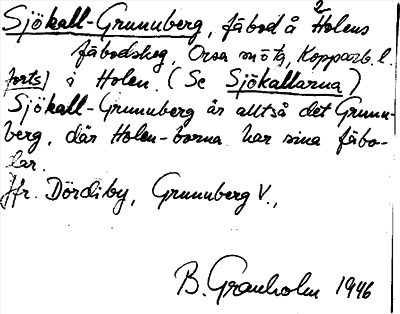 Sjökall-Grunuberg, fäbod å Holens
fäbodskog, Orsa , Kopparb. l.
forts) i Holen. (Se Sjökallarna)
Sjökall-Grunuberg är alltså det Grunu-
berg, där Holen-borna har sina fäbo-
dar.
Jfr. Dördiby, Grunuberg V.,
B. Granholm 1946